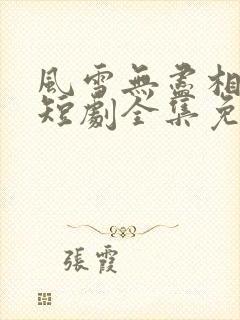 風雪無盡相
短劇全集免
張霞